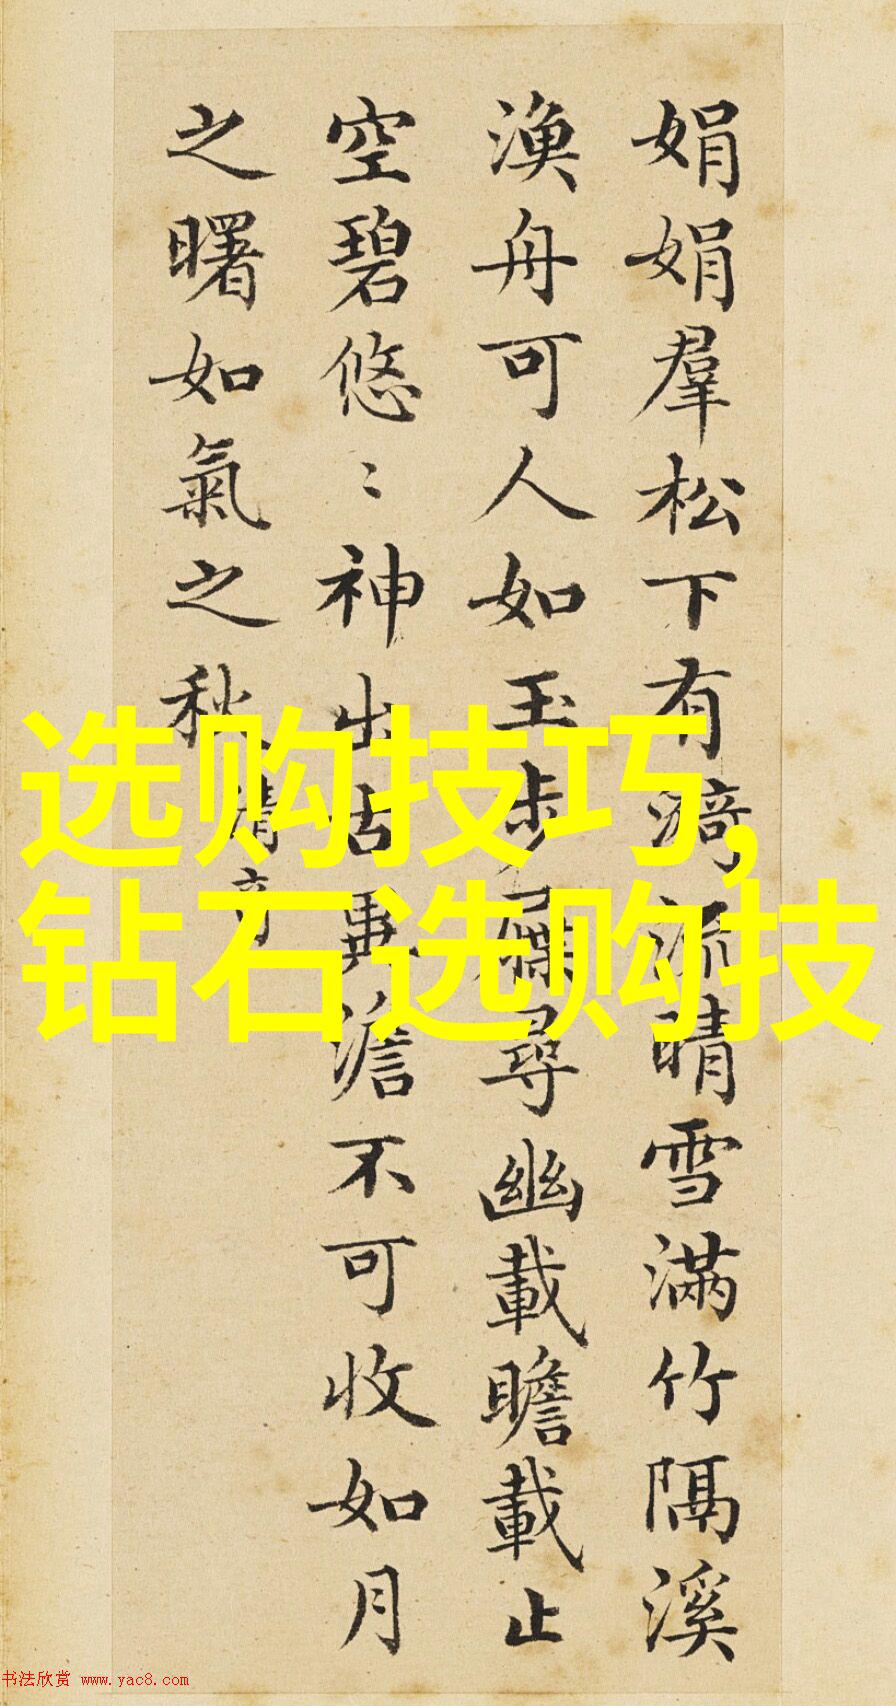 娟娟羣松下有漪流晴雪滿竹隔溪
漁舟可人如玉步屧尋幽載瞻載止
空碧悠〻神出古異澹不可收如月
之曙如氣之秋 清奇
选购技巧,
钻石选购技
书法欣赏 www.yac8.com